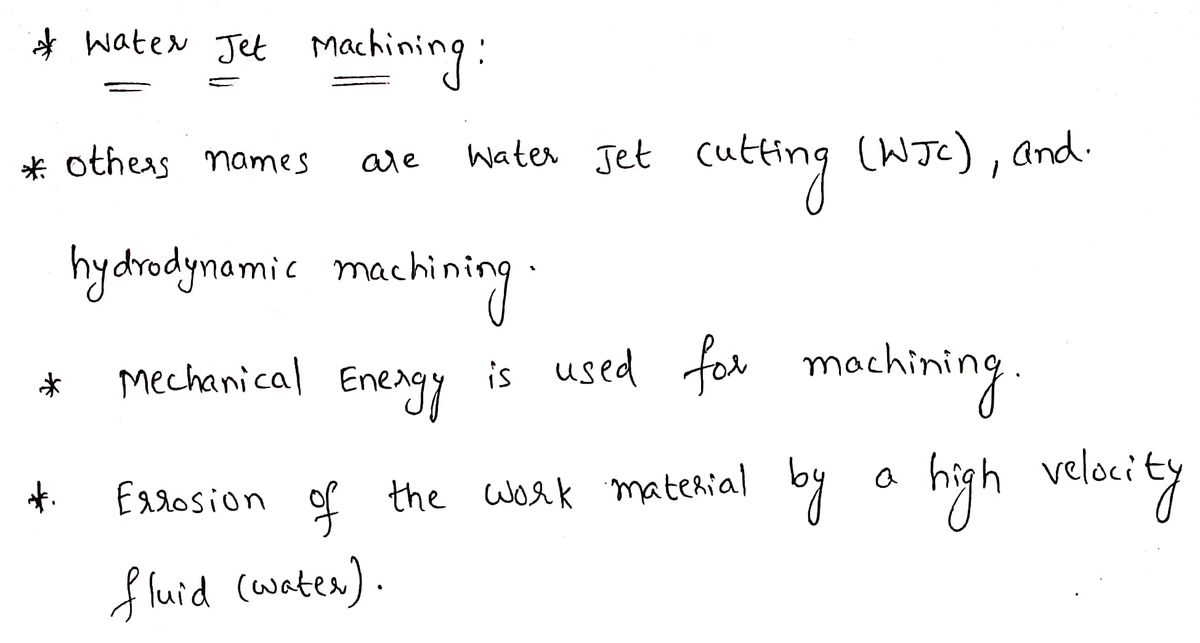 * Water Jet Machining:
* others names are Water Jet cutting (WJC), and.
hydrodynamic machining.
* Mechanical Energy is used for machining.
*. Errosion of the work material by a high velocity
fluid (water).